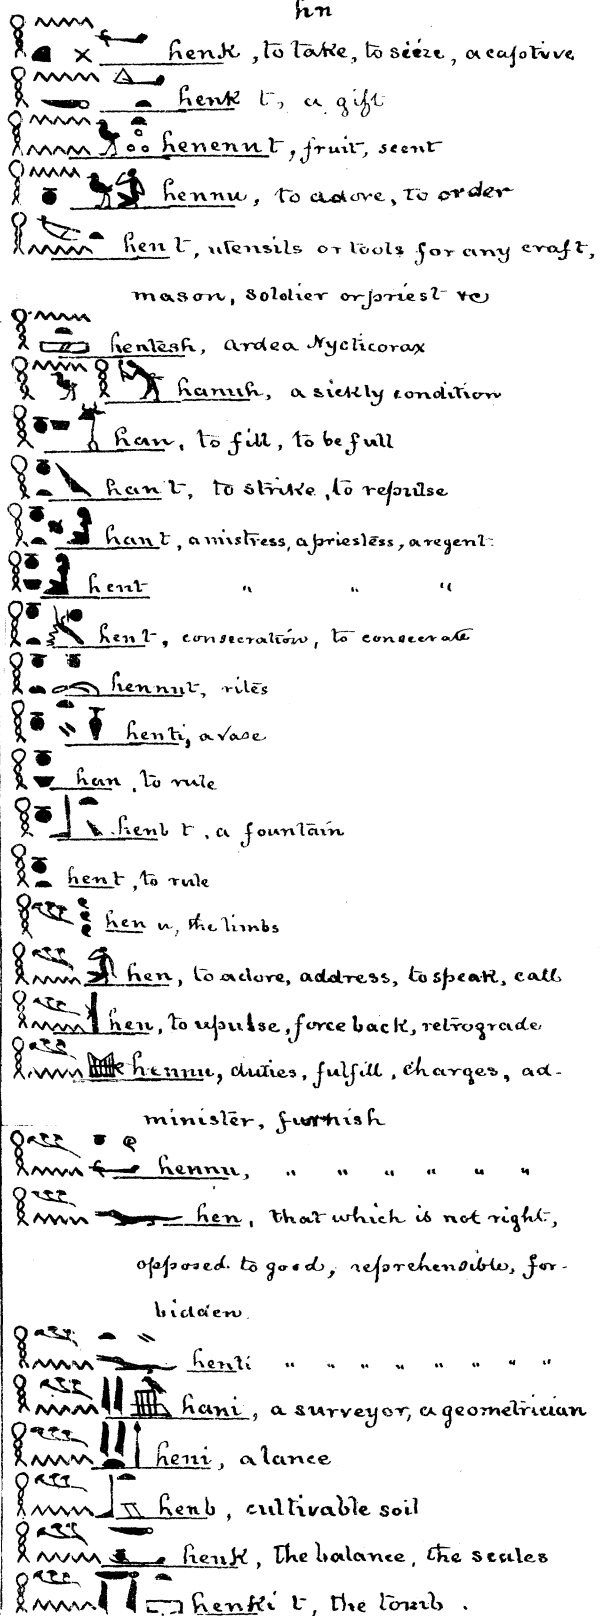 hn
henk, to take, to seize, a captive
henk t, a gift
henennut, fruit, scent
hennu, to adore, to order
hent, utensils or tools for any craft,
mason, soldier or priest &c
hentesh, Ardea Nycticorax
hanuh, a sickly condition
han, to fill, to be full
hant, to strike, to repulse
hant, a mistress, a priestess, a regent
hent " " "
hent, consecration, to consecrate
hennut, rites
henti, a vase
han, to rule
henb t, a fountain
hent, to rule
hen u, the limbs
hen, to adore, address, to speak, call
hen, to repulse, force back, retrograde
hennu, duties, fulfill, charges, ad-
minister, furnish
hennu, " " " " " "
hen, that which is not right,
opposed to good, reprehensible, for-
bidden.
henti " " " " " " " "
hani, a surveyor, a geometrician
heni, a lance
henb, cultivable soil
henk, the balance, the scales
henki t, the tomb.